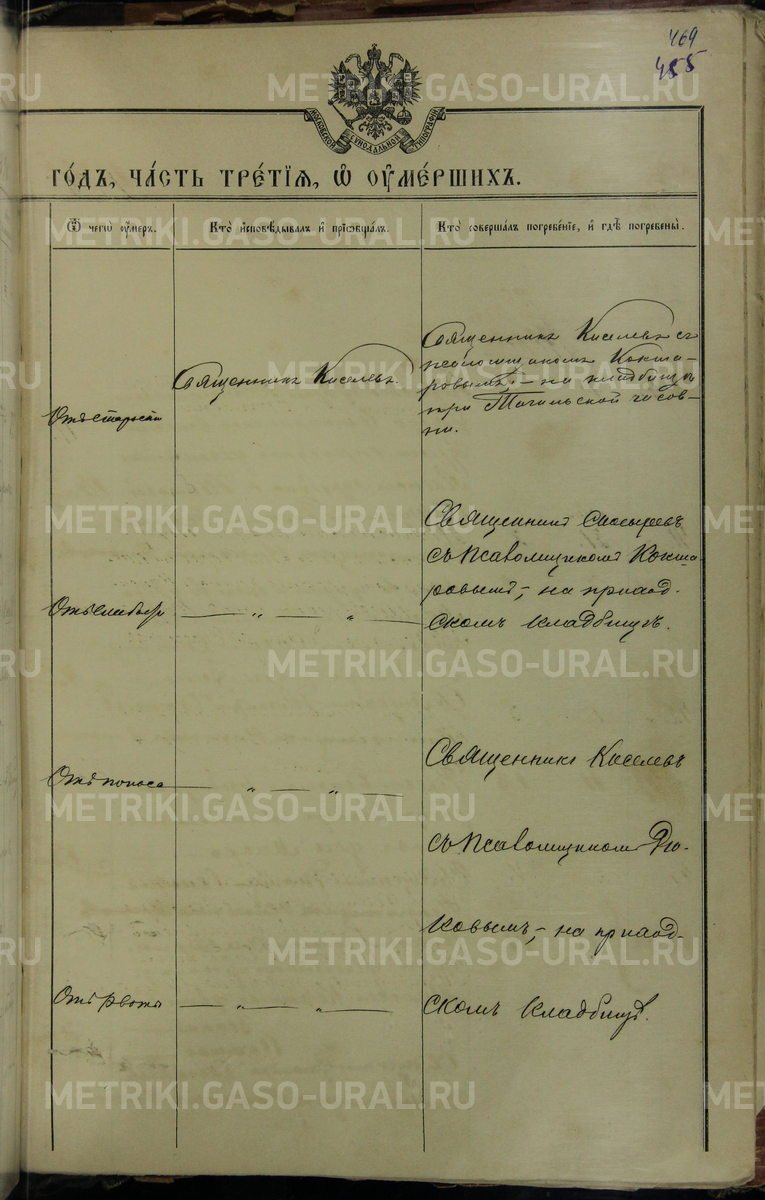 469
455
МОСКОВСКОЙ СѴНОДАЛЬНОЙ ТИПОГРАФІИ
го́дъ, ча́сть тре́тїѧ, ѡ҆ ᲂу҆ме́ршихъ.
Ѿ чегѡ̀ ᲂу҆́меръ.
Кто̀ и҆сповѣ́дывалъ и҆ прїѡбща́лъ.
Кто̀ соверша́лъ погребе́нїе, и҆ гдѣ̀ погребены̀.
Отъ старости
Священникъ Киселевъ.
Священникъ Киселевъ съ
псаломщикомъ Кокша-
ровымъ, – на кладбищѣ
при Тагильской часов-
ни.
Отъ слабости
— „ — „ —
Священникъ
съ Псаломщикомъ Кокша
ровымъ, – на приход.
скомъ кладбищѣ.
Отъ поноса
— „ — „ —
Священникъ Киселевъ
съ Псаломщикомъ
ковымъ, – на приход-
скомъ кладбищѣ.
Отъ рвоты
— „ — „ —
METRIKI.GASO-URAL.RU